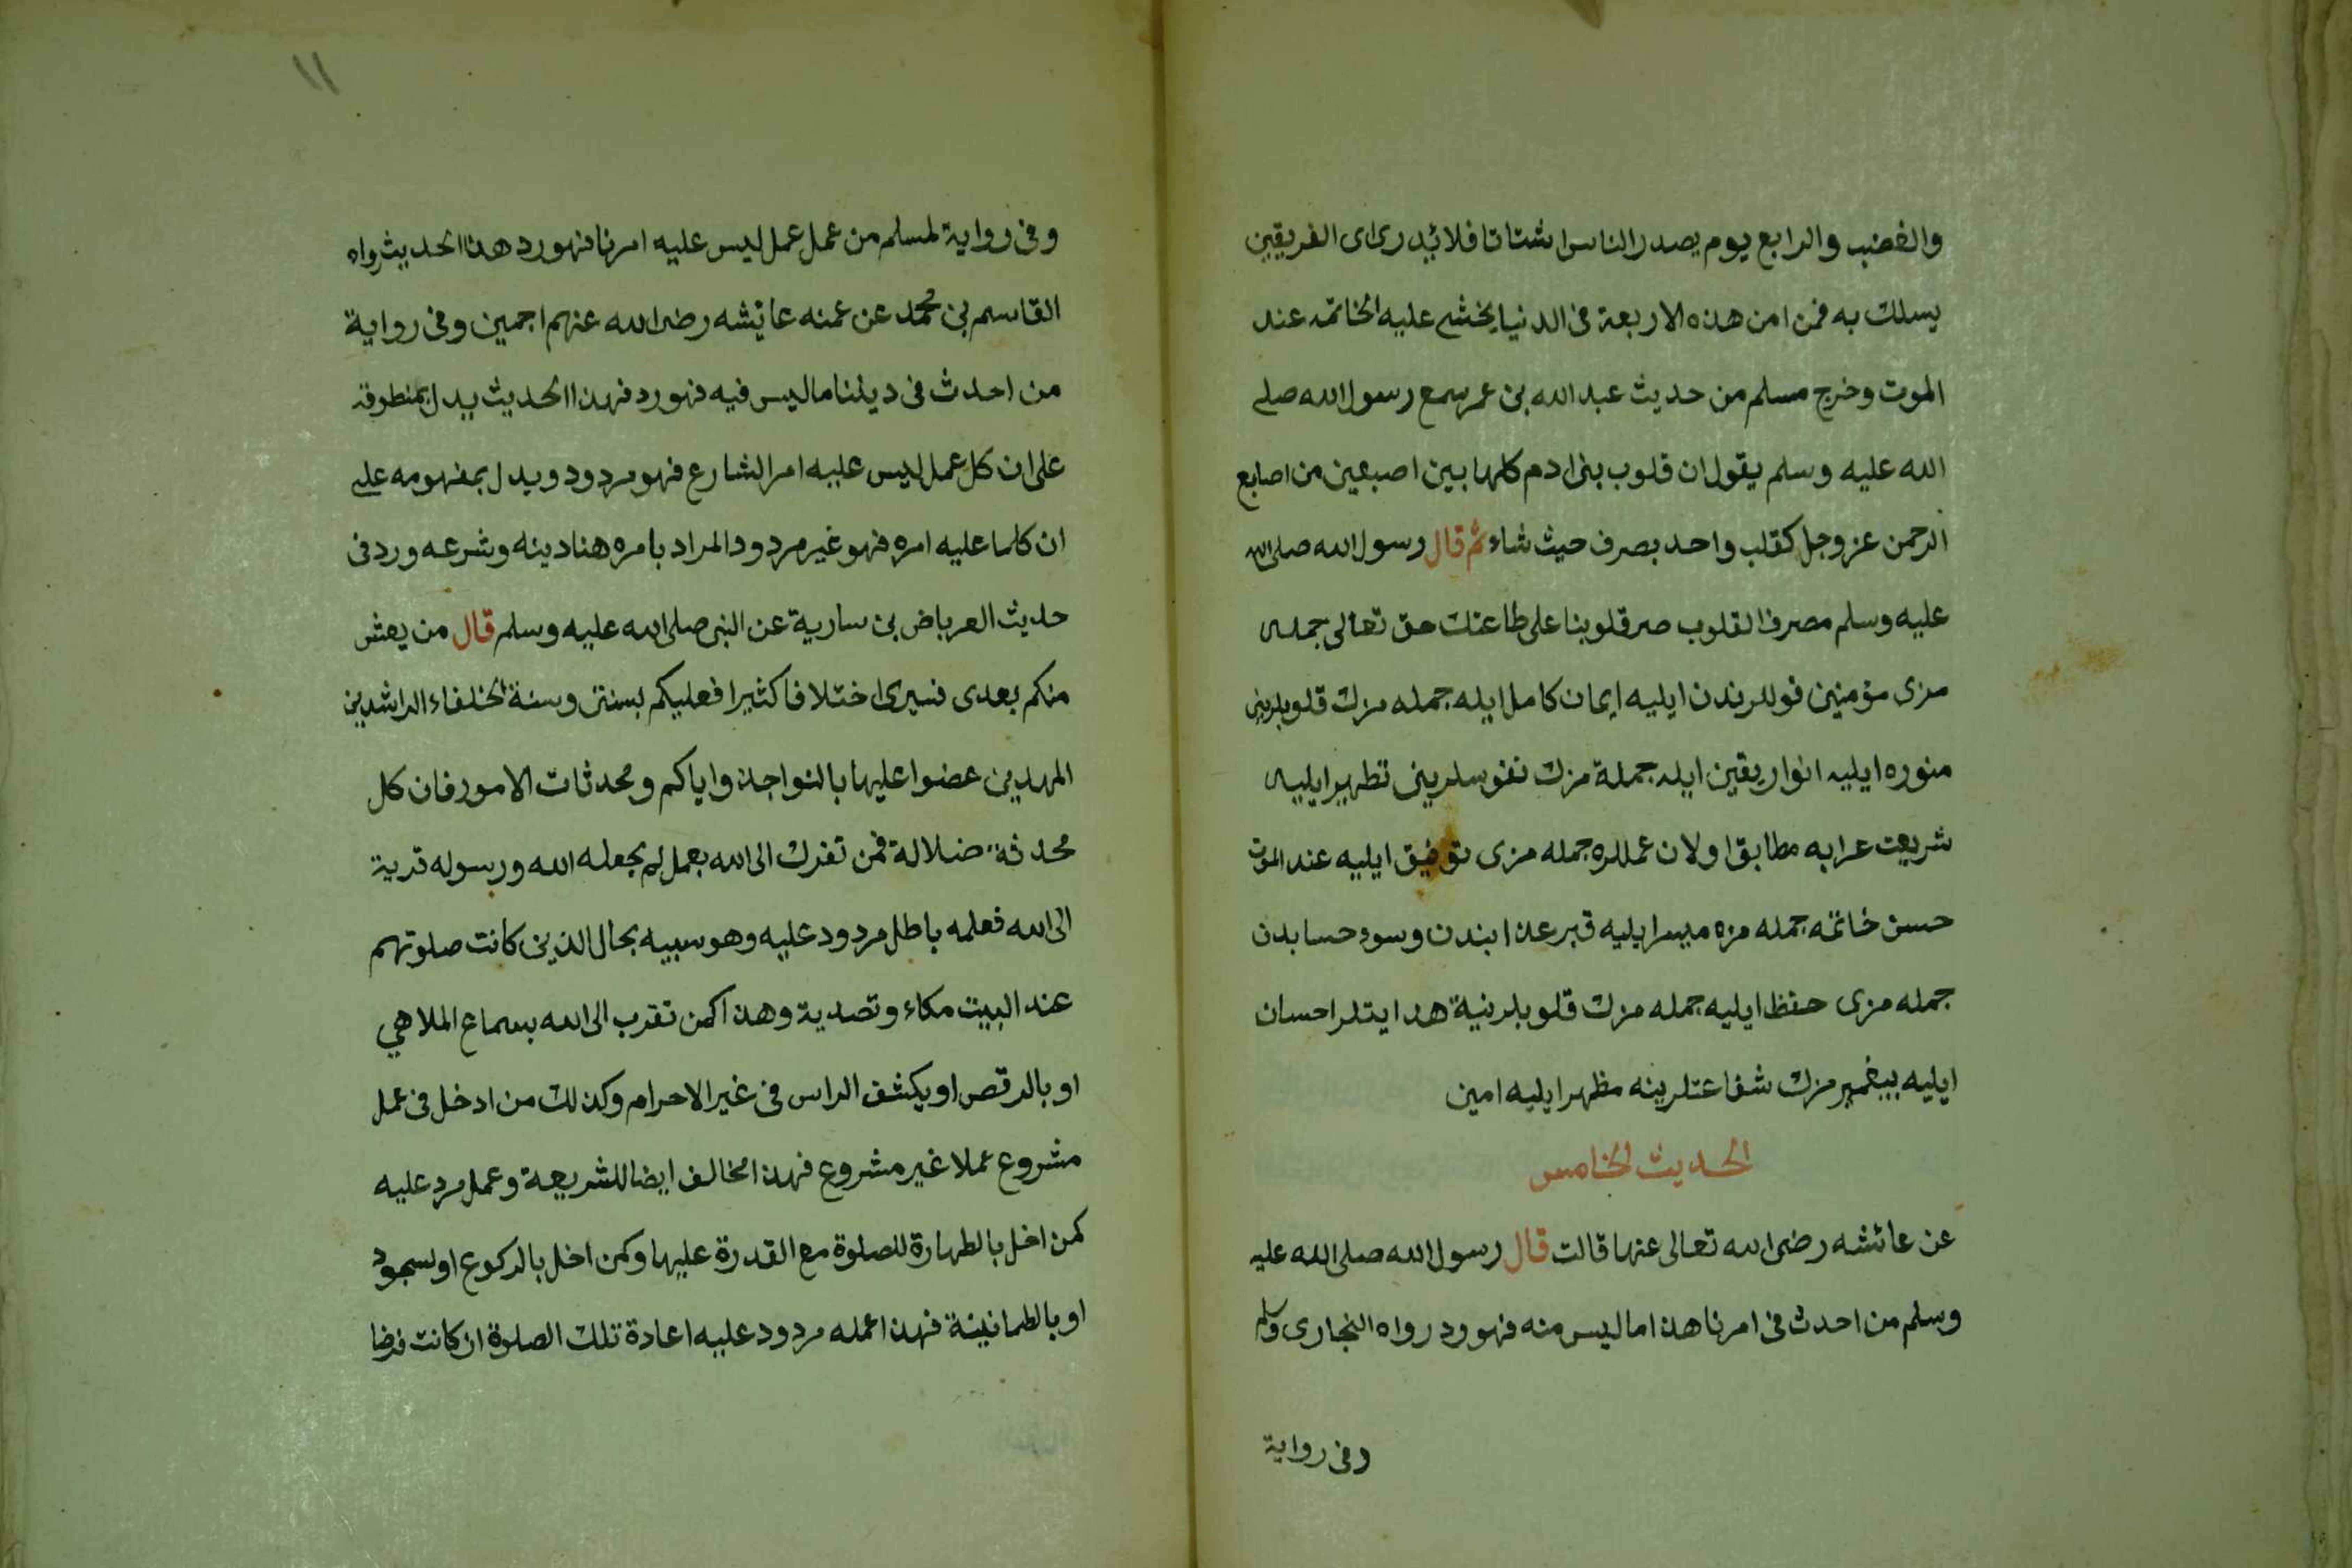 والغضب والرابع يوم يصدر الناس اشتاتا فلا يدرى اى الفريقين
يسلك به فمن امن هذه الاربعة فى الدنيا يخشى عليه الخاتمه عند
الموت وخرج مسلم من حديث عبد الله بن عمر سمع رسول الله صلى
الله عليه وسلم يقول ان قلوب بنى ادم كلها بين اصبعين من اصابع
الرحمن عز وجل كقلب واحد يصرف حيث شاء ثم قال رسول الله صلى الله
عليه وسلم مصرف القلوب صرقلوبنا على طاعتك حق تعالى جمله
مزى مؤمنين قوللرندن ايليه ايمان كامل ايله جمله مزك قلوبلرينى
منوره ايليه انوار يقين ايله جملة مزك نفوسلرينى تطهير ايليه
شريعت عرابه مطابق اولان عمللره جمله مزى توفيق ايليه عند الموت
حسن خاتمه جمله مزه ميسر ايليه قبر عذابندن وسوء حسابدن
جمله مزى حفظ ايليه جمله مزك قلوبلرنية هدايتلر احسان
ايليه پيغمبر مزك شفاعتلرينه مظهر ايليه امين
الحديث الخامس
عن عائشه رضى الله تعالى عنها قالت قال رسول الله صلى الله عليه
وسلم من احدث فى امرنا هذا ما ليس منه فهو رد رواه البخارى
وفى رواية
١١
وفى رواية لمسلم من عمل عمل ليس عليه امرنا فهو رد هذا الحديث رواه
القاسم بن محمد عن عمته عائشه رضى الله عنهم اجمين وفى رواية
من احدث فى ديننا ما ليس فيه فهو رد فهذا الحديث يدل بمنطوقه
على ان كل عمل ليس عليه امر الشارع فهو مردود ويدل بمفهومه على
ان كلما عليه امره فهو غير مردود المراد بامره هنا دينه وشرعه ورد فى
حديث العرباض بن سارية عن النبى صلى الله عليه وسلم قال من يعش
منكم بعدى فسيرى اختلافا كثيرا فعليكم بسنتى وسنة الخلفاء الراشدين
المهديين عضوا عليها بالنواجذ واياكم ومحدثات الامور فان كل
محدثة ضلالة فمن تقرب الى الله بعمل لم يجعله الله ورسوله قربة
الى الله فعلمه باطل مردود عليه وهو سبيه بحال الذين كانت صلوتهم
عند البيت مكاء وتصدية وهذا كمن تقرب الى الله بسماع الملاهي
او بالرقص او يكشف الراس فى غير الاحرام وكذلك من ادخل فى عمل
مشروع عملا غير مشروع فهذا مخالف ايضا للشريعة وعمل مرد عليه
كمن اخل بالطهارة للصلوة مع القدرة عليها وكمن اخل بالركوع او لسجود
او بالطمانينة فهذا عمله مردود عليه اعادة تلك الصلوة ان كانت فرضا